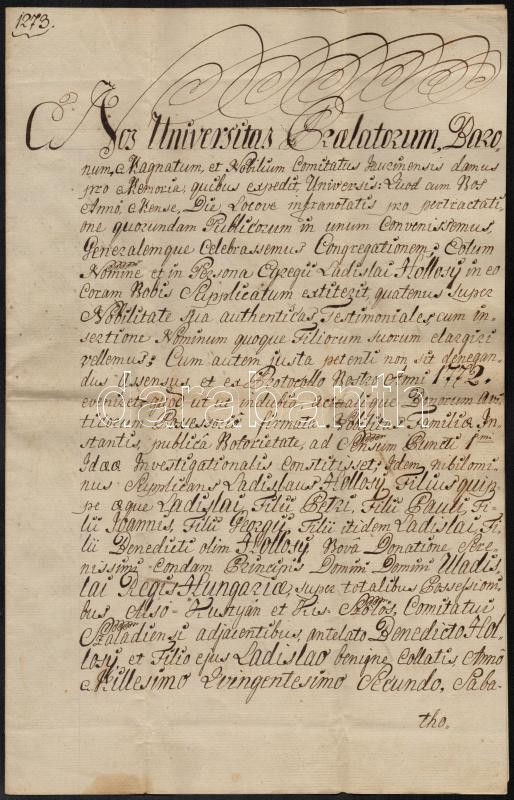 1273.
Nos Universitas Prælatorum, Baro-
num, Magnatum, et Nobilium Comitatus Jaurinensis damus
pro Memoria, quibus expedit, Universis: Quod cum Nos
Anno, Mense, Die Locove infranotatis pro pertractati-
one quorundam Publicorum in unum Convenissemus,
Generalemque Celebrassemus Congregationem; Eotum
Nomine et in Persona Egregii Ladislai Hollosy in eo
coram Nobis Supplicatum extiterit, quatenus super
Nobilitate sua authenticas Testimoniales, cum in-
sertione Nominum quoque Filiorum suorum elargiri
vellemus; Cum autem justa petenti non sit denegan-
dus Assensus, et ex Protocollo Nostro Anni 1772.
evenisset, ut is indubia Bonorum Avi-
ticorum Possessoria firmata Nobilitas Familiæ In-
stantis, publica Notorietate, ad Sensum Puncti 1mi
Idææ Investigationalis constitisset; Idem nihilomi-
nus Supplicans Ladislaus Hollosy, Filius quip-
pe æque Ladislai, Filii Petri, Filii Pauli, Fi-
lii Joannis, Filii Georgii, Filii itidem Ladislai, Fi-
lii Benedicti olim Hollosy Nova Donatione Sere-
nissimi condam Principis Domini Domini Uladis-
lai Regis Hungariæ, super totalibus Possessioni-
bus Also-Kustyan et Kis- Comitatui
Szaladiensi adjacentibus, antelato Benedicto Hol-
losy, et Filio ejus Ladislao benigne Collatis, Anno
Millesimo Quingentesimo Secundo, Saba-
tho.
darabanth